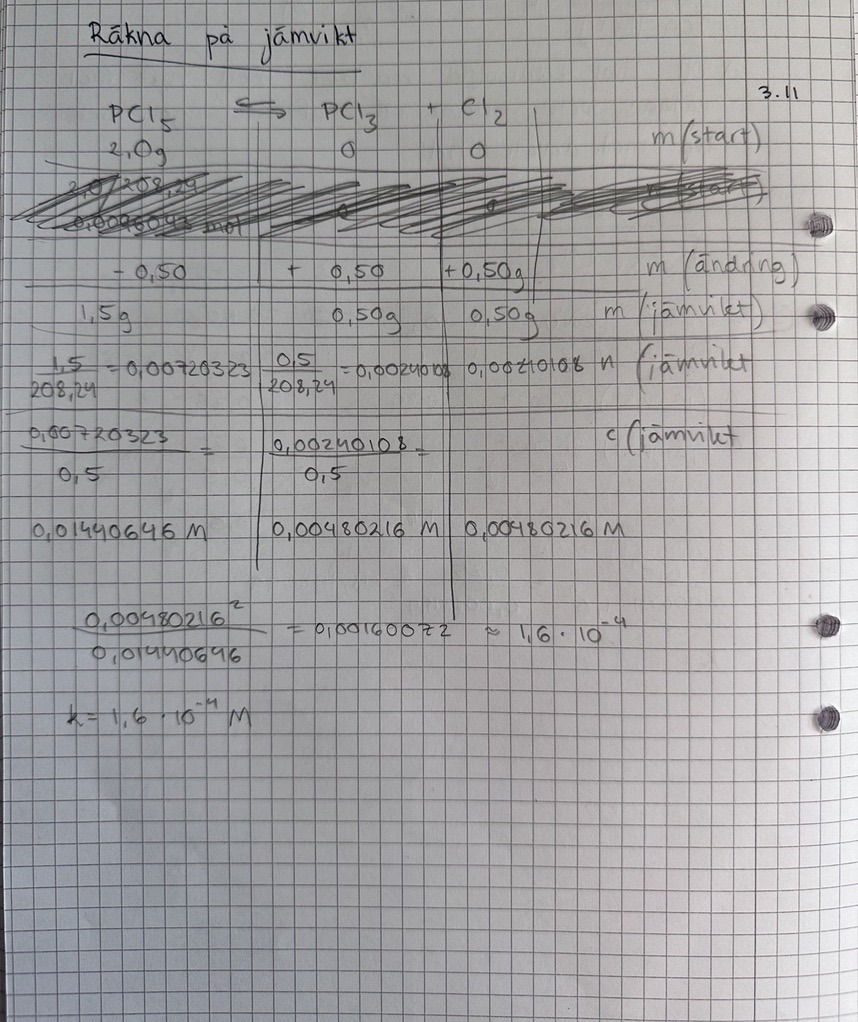 Räkna på jämvikt
3.11
PCl5 ⇌ PCl3 + Cl2
2,0g 0 0 m (start)
- 0,50 + 0,50 +0,50g m (ändring)
1,5g 0,50g 0,50g m (jämvikt)
1,5/208,24 = 0,00720323 0,5/208,24 = 0,0024008 0,00240108 n (jämvikt
0,00720323/0,5 = 0,00240108/0,5 = c (jämvikt
0,01440646 M 0,00480216 M 0,00480216 M
0,00480216²/0,01440646 = 0,00160072 ≈ 1,6 · 10⁻⁴
k = 1,6 · 10⁻⁴ M